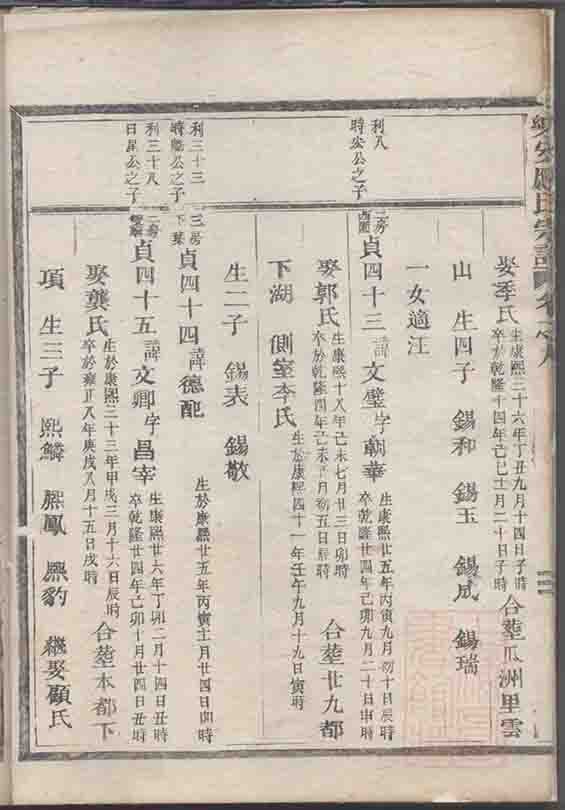 娶季氏 生康熙三十六年丁丑九月十四日子時 卒於乾隆十四年己巳十二月二十日子時 合塟瓜洲里雲
山 生四子 錫和 錫玉 錫成 錫瑞
一女適江
利八
時 公之子
二房
貞四十三 諱文璧 字朝華 生康熙廿五年丙寅九月初十日辰時 卒乾隆廿四年己卯九月二十日申時
娶郭氏 生康熙十八年己未七月廿三日卯時 卒於乾隆四年己未 月初五日辰時 合塟廿九都
下湖 側室李氏 生於康熙四十一年壬午九月十九日寅時
生二子 錫表 錫敬
利三十三
時 公之子
三房
下葉
貞四十四 諱德配 生於康熙廿五年丙寅十二月廿四日卯時
利三十八
日昆公之子
二房
貞四十五 諱文卿 字昌宰 生康熙廿六年丁卯二月十四日丑時 卒乾隆廿四年己卯十月廿四日丑時
娶龔氏 生於康熙三十三年甲戌三月十六日辰時 卒於雍正八年庚戌八月十五日戌時 合塟本都下
項 生三子 熙鱗 熙鳳 熙豹 繼娶顧氏